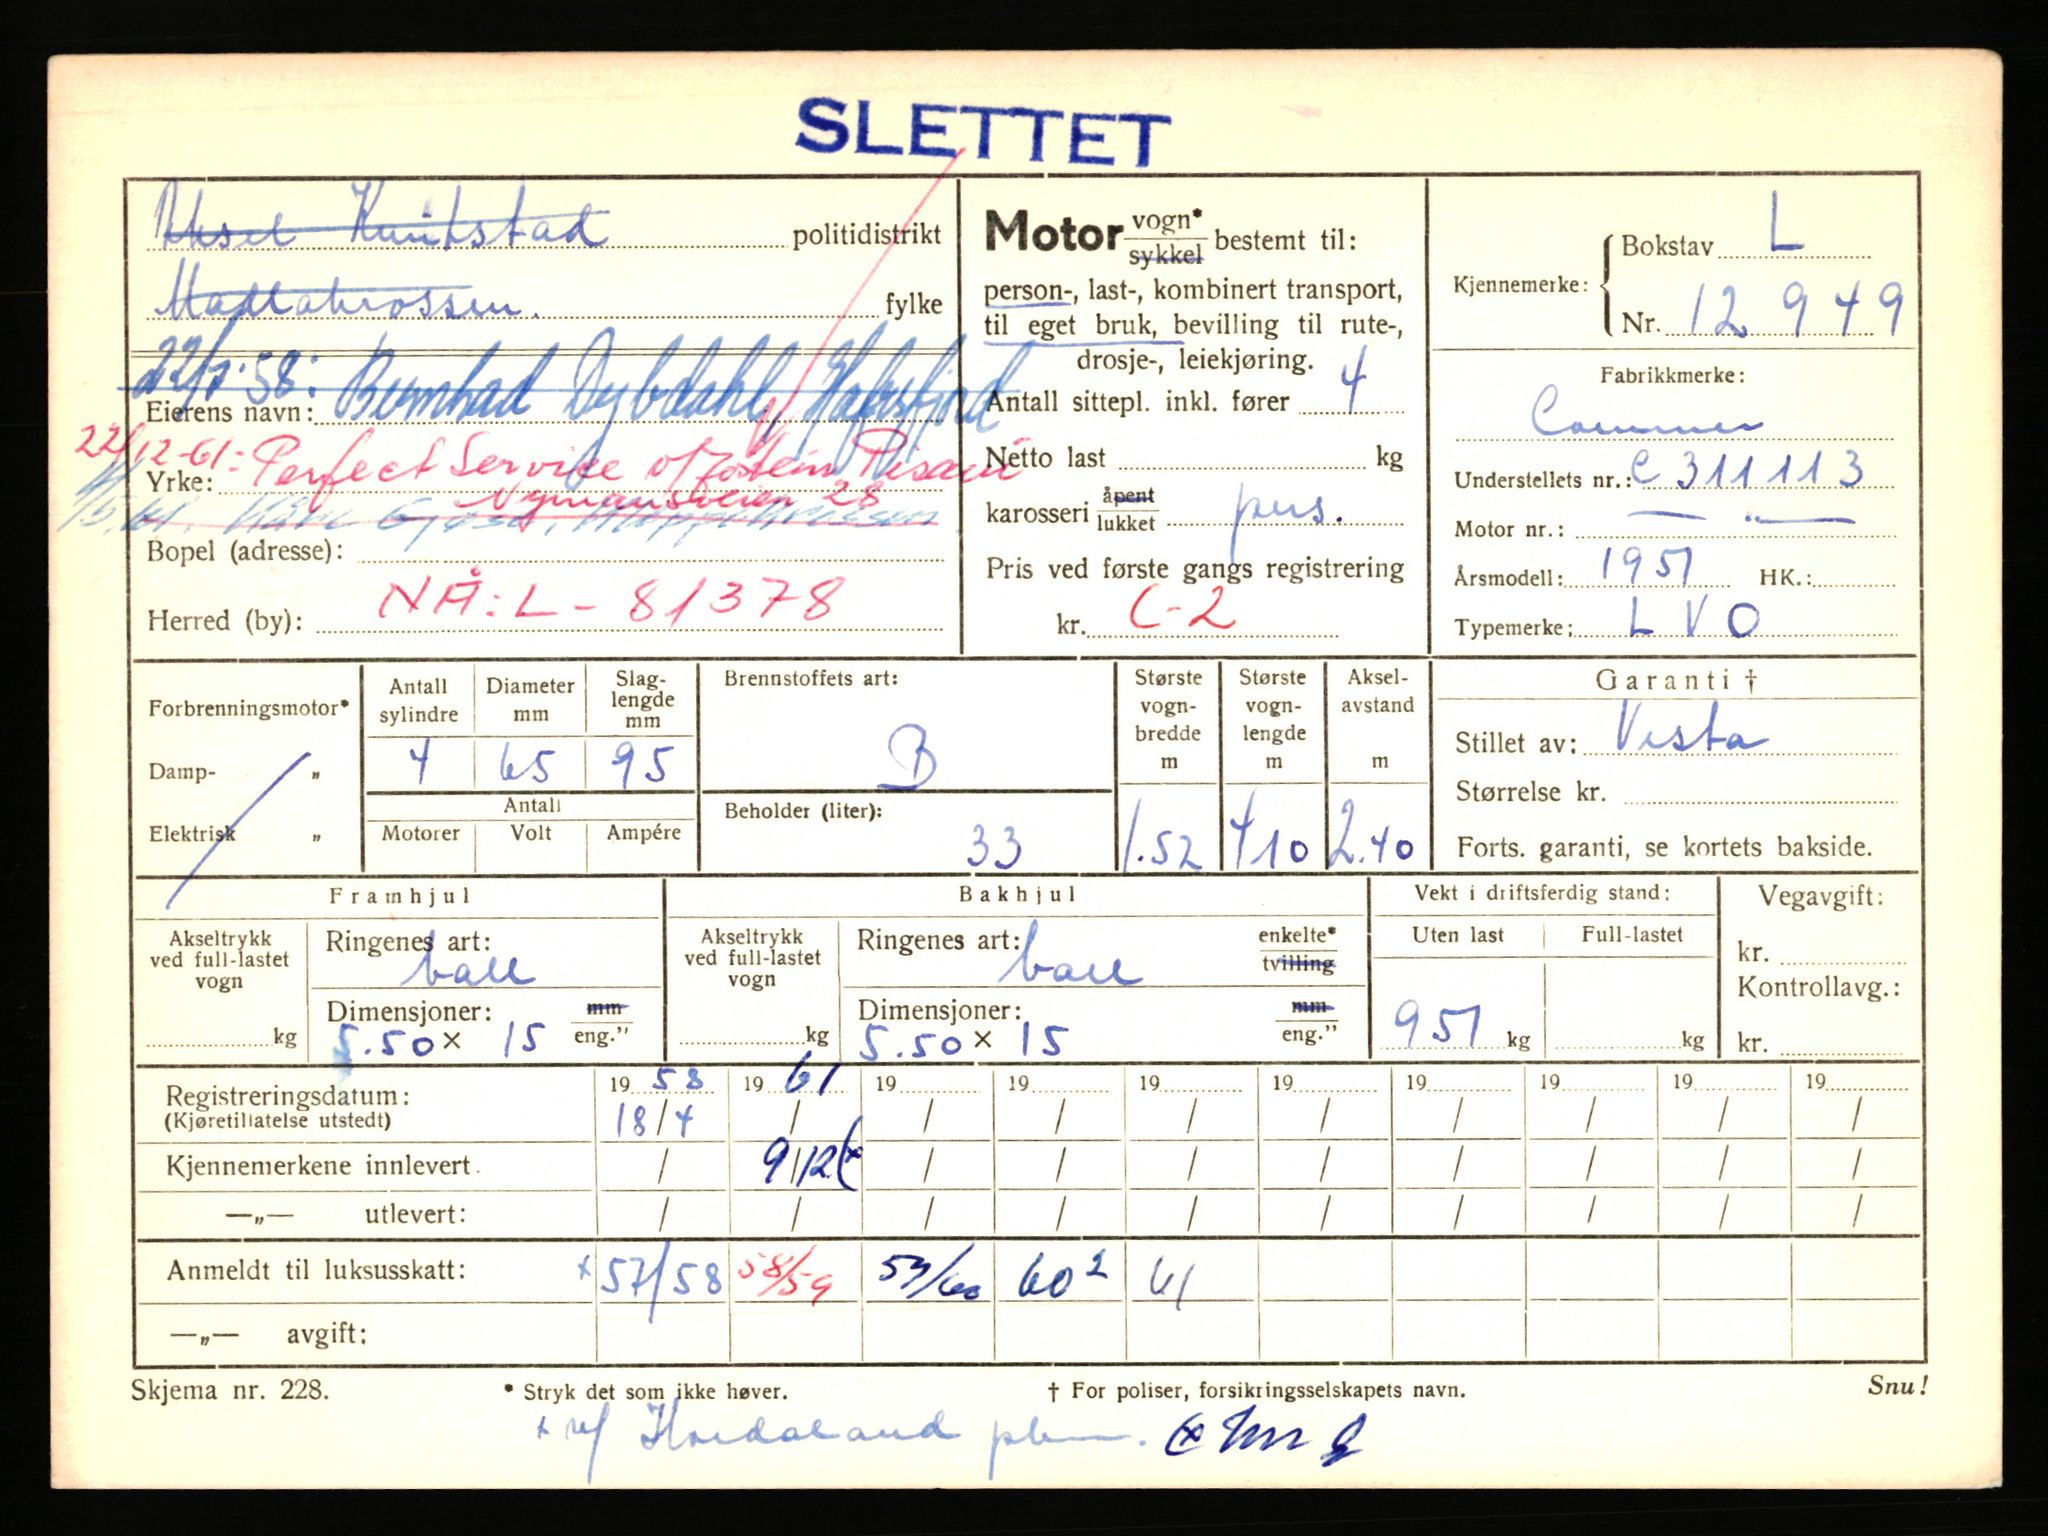 SLETTET
Aksel Knutstad politidistrikt
Madlakrossen. fylke
22/7-58: Bernhard Dybdahl, Hafrsfjord
Eierens navn:
22/12-61: Perfect Service v/Jostein
Yrke: Nymansveien 28
Bopel (adresse):
Herred (by): NÅ: L - 81378
Motor vogn* sykkel bestemt til:
person-, last-, kombinert transport,
til eget bruk, bevilling til rute-,
drosje-, leiekjøring.
Antall sittepl. inkl. fører 4
Netto last kg
karosseri åpent lukket pers.
Pris ved første gangs registrering
kr. C-2
Kjennemerke: Bokstav L
Nr. 12 949
Fabrikkmerke:
Commer
Understellets nr.: C 311113
Motor nr.: — " —
Årsmodell: 1951 HK.:
Typemerke: L V O
Forbrenningsmotor*
Damp- „
Elektrisk „
Antall sylindre Diameter mm Slag-lengde mm
4 65 95
Antall
Motorer Volt Ampére
Brennstoffets art:
B
Beholder (liter):
33
Største vogn-bredde m Største vogn-lengde m Aksel-avstand m
1.52 4 10 2.40
Garanti †
Stillet av: Vesta
Størrelse kr.
Forts. garanti, se kortets bakside.
Framhjul
Akseltrykk ved full-lastet vogn kg
Ringenes art: ball
Dimensjoner: mm
5.50 × 15 eng."
Bakhjul
Akseltrykk ved full-lastet vogn kg
Ringenes art: ball enkelte* tvilling
Dimensjoner: mm
5.50 × 15 eng."
Vekt i driftsferdig stand:
Uten last Full-lastet
951 kg kg
Vegavgift:
kr.
Kontrollavg.:
kr.
Registreringsdatum: 19 58 19 61 19 19 19 19 19 19 19 19
(Kjøretillatelse utstedt) 18/4 / / / / / / / / /
Kjennemerkene innlevert / 9/12 (x / / / / / / / /
—„— utlevert: / / / / / / / / / /
Anmeldt til luksusskatt: x 57/58 58/59 59/60 60 2 61
—„— avgift:
Skjema nr. 228. * Stryk det som ikke høver. † For poliser, forsikringsselskapets navn. Snu!
x v/ Hordaland